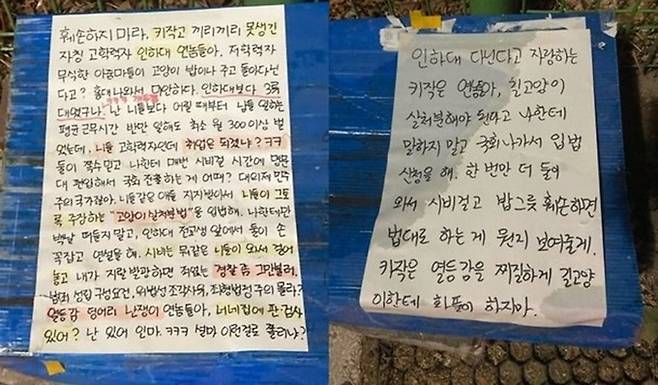 훼손하지 마라, 키작고 끼리끼리 못생긴
자칭 고학력자 인하대 연놈들아. 저학력자
무식한 아줌마들이 고양이 밥이나 주고 돌아다닌
다고? 홍대나와서 미안하다. 인하대보다 3류
대였구나. ㅋㅋㅋ
난 니들보다 어릴 때부터 남들 일하는
평균 근무시간 반만 일해도 최소 월 300이상 벌
었는데, 니들 고학력자인데 취업은 되겠냐? ㅋㅋ
둘이 쪽수 믿고 나한테 매번 시비걸 시간에 명문
대 편입해서 국회 진출하는 게 어때? 대의제 민주
주의 국가잖아. 니들같은 애들 지지받아서 니들이 그토
록 주장하는 "고양이 살처분법"을 입법해. 나한테만
백날 떠들지 말고, 인하대 전교생 앞에서 둘이 손
꼭잡고 연설을 해. 시비는 뭐같은 니들이 와서 걸어
놓고 내가 지랄 발광하면 처있는 경찰 좀 그만불러.
범죄 성립 구성요건, 위법성 조각사유, 죄형법정주의 몰라?
열등감 덩어리 난쟁이 연놈들아, 너네집에 판·검사
있어? 난 있어 인마. ㅋㅋㅋ 설마 이전걸로 쫄려나?
인하대 다닌다고 자랑하는
키작은 연놈들아, 길고양이
살처분해야 된다고 나한테
말하지 말고 국회나가서 입법
신청을 해. 한 번만 더 둘이
와서 시비걸고 밥그릇 훼손하면
법대로 하는 게 뭔지 보여줄게.
키작은 열등감을 찌질하게 길고양
이한테 화풀이 하지마.